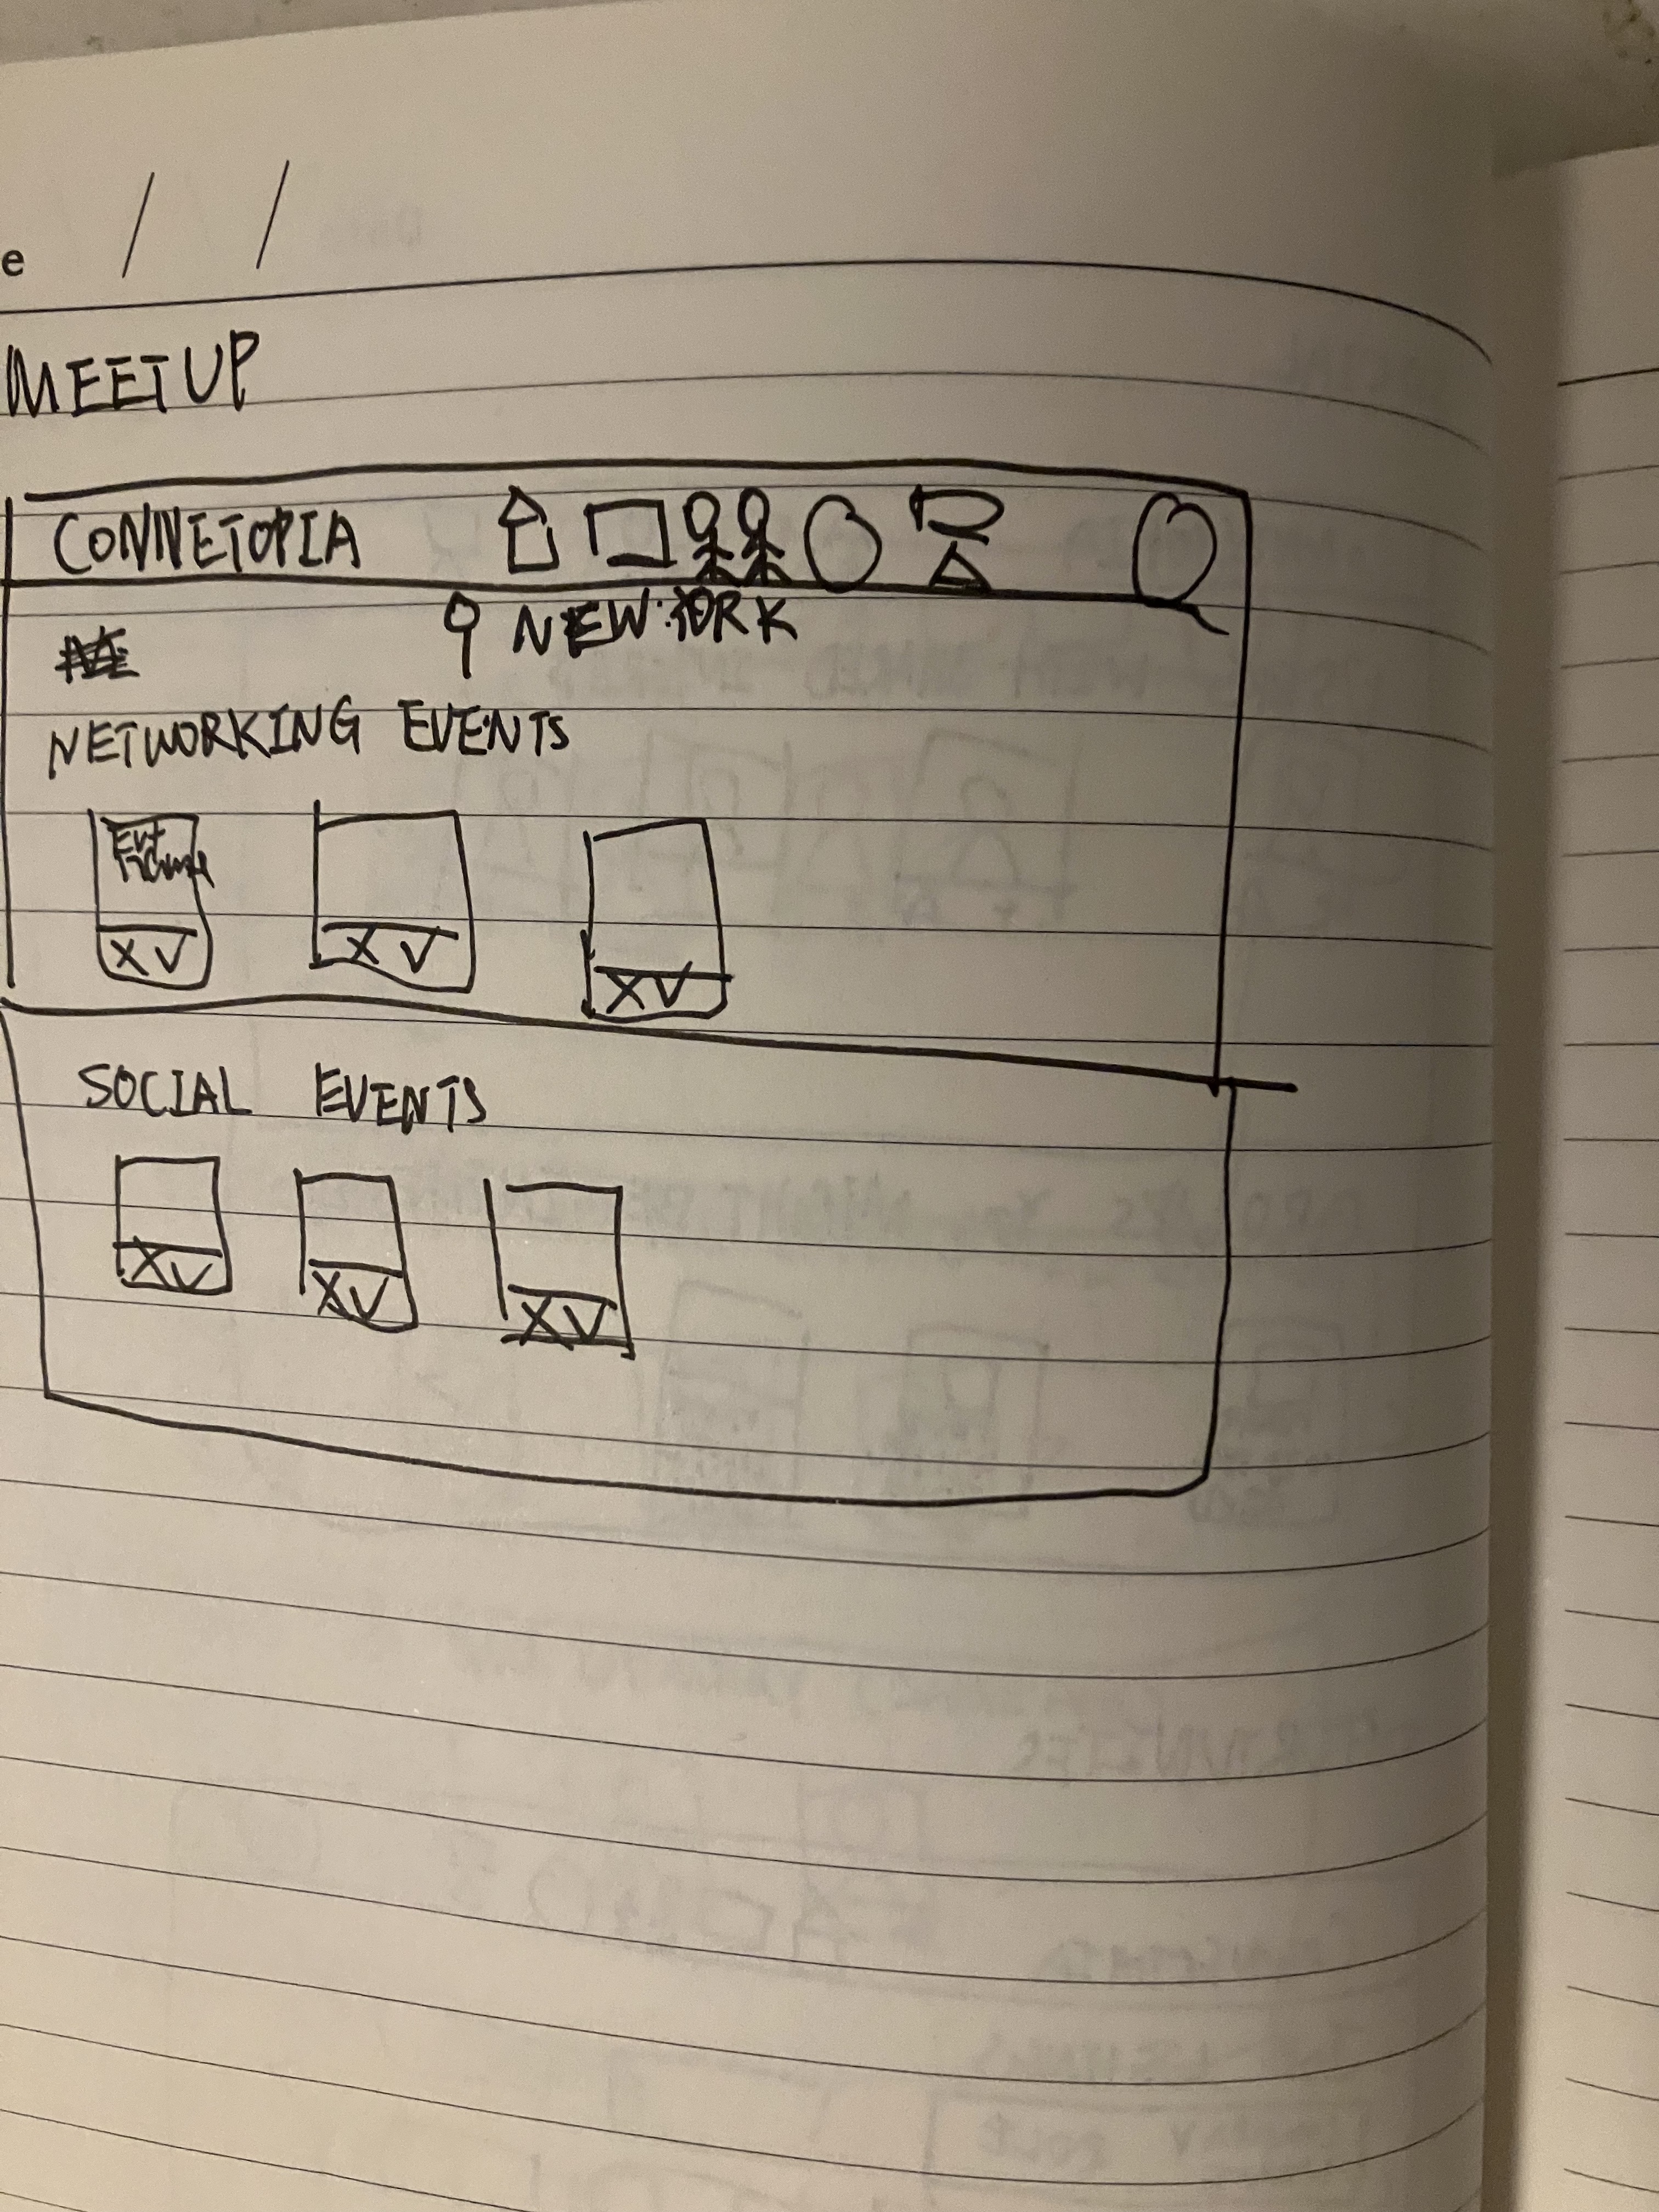 e / /
MEETUP
CONNETOPIA
NEW YORK
NETWORKING EVENTS
X V X V X V
SOCIAL EVENTS
X V X V X V